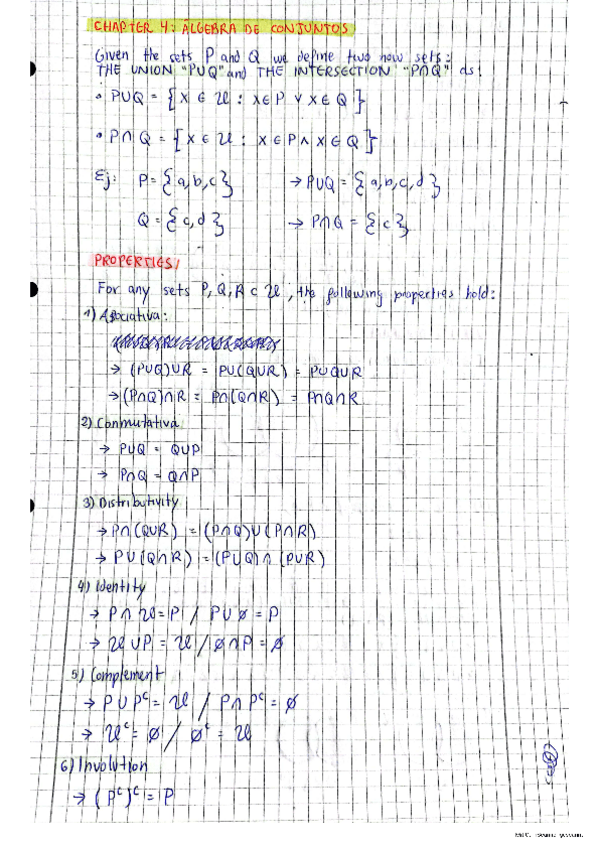 CHAPTER 4: ÁLGEBRA DE CONJUNTOS
Given the sets P and Q we define two new sets:
THE UNION "P∪Q" and THE INTERSECTION "P∩Q" as:
• P∪Q = { x ∈ U : x∈P ∨ x∈Q }
• P∩Q = { x ∈ U : x∈P ∧ x∈Q }
Ej: P= {a,b,c} → P∪Q = {a,b,c,d}
Q = {c,d} → P∩Q = {c}
PROPERTIES/
For any sets P, Q, R ⊂ U, the following properties hold:
1) Asociativa:
→ (P∪Q)∪R = P∪(Q∪R) = P∪Q∪R
→ (P∩Q)∩R = P∩(Q∩R) = P∩Q∩R
2) Conmutativa
→ P∪Q = Q∪P
→ P∩Q = Q∩P
3) Distributivity
→ P∩(Q∪R) = (P∩Q)∪(P∩R)
→ P∪(Q∩R) = (P∪Q)∩(P∪R)
4) Identity
→ P∩U = P / P∪∅ = P
→ U∪P = U / ∅∩P = ∅
5) Complement
→ P∪Pᶜ = U / P∩Pᶜ = ∅
→ Uᶜ = ∅ / ∅ᶜ = U
6) Involution
→ (Pᶜ)ᶜ = P